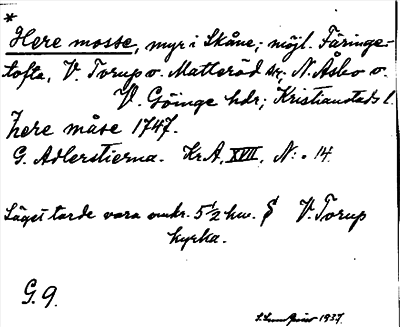 *
Here mosse, myr i Skåne; möjl. Färinge-
tofta, V. Torup o. Matteröd sr; N. Åsbo o.
V. Göinge hdr; Kristianstads l.
here måse 1747.
G. Adlerstierna. Kr.A. XVII. N:o 14.
Läget torde vara omkr. 5½ km. S V. Torup
kyrka.
G. 9.
1937.